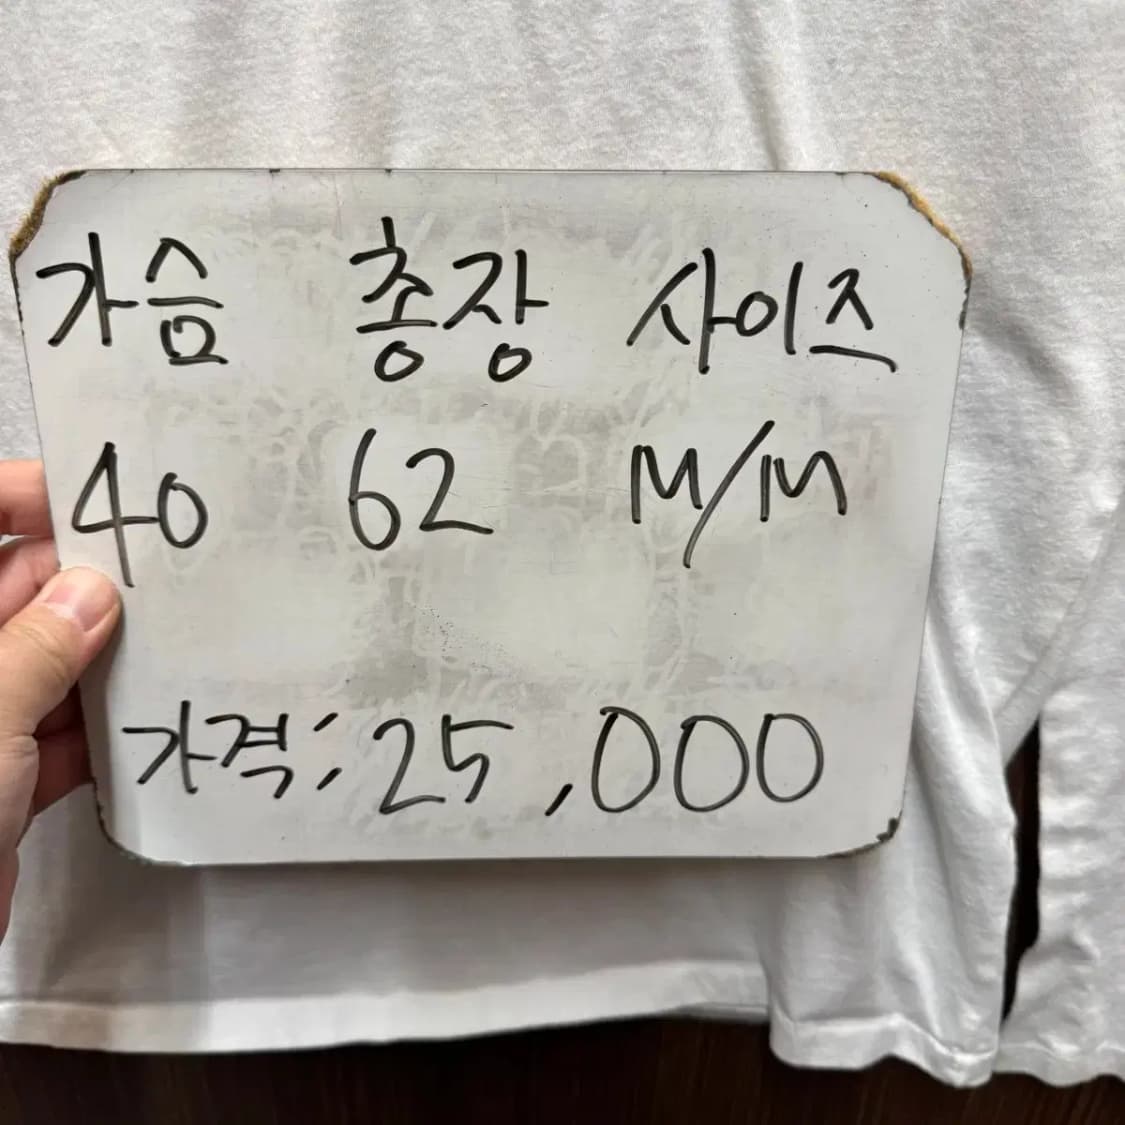 가슴 총장 사이즈
40 62 M/M
가격: 25,000